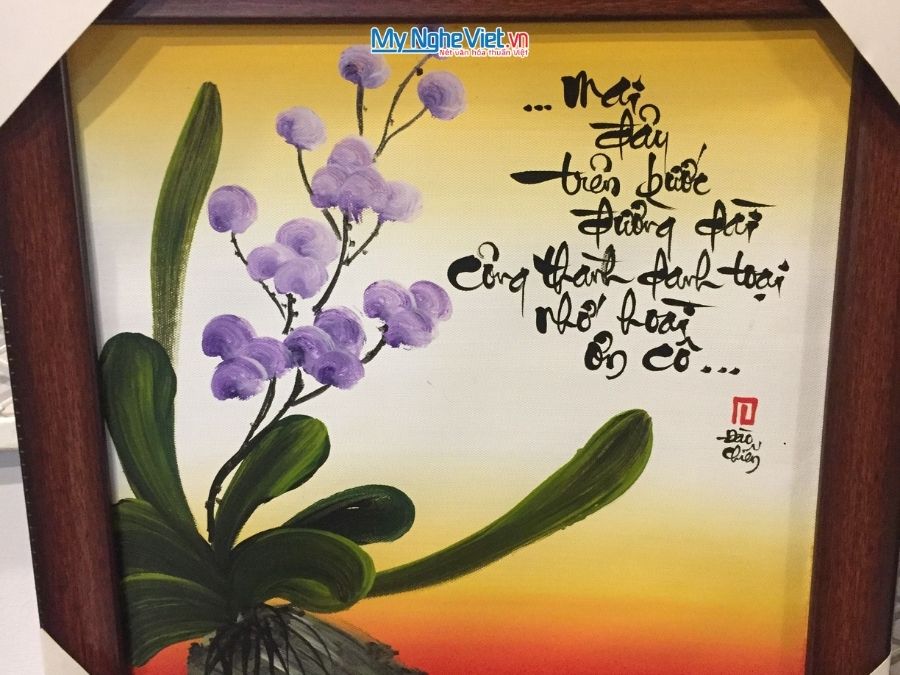 My Nghe Viet.vn
Nét văn hóa thuần Việt
... mai
đây
trên bước
đường dài
Công thành danh toại
nhớ hoài
ơn cô ...
Đào
Chiến